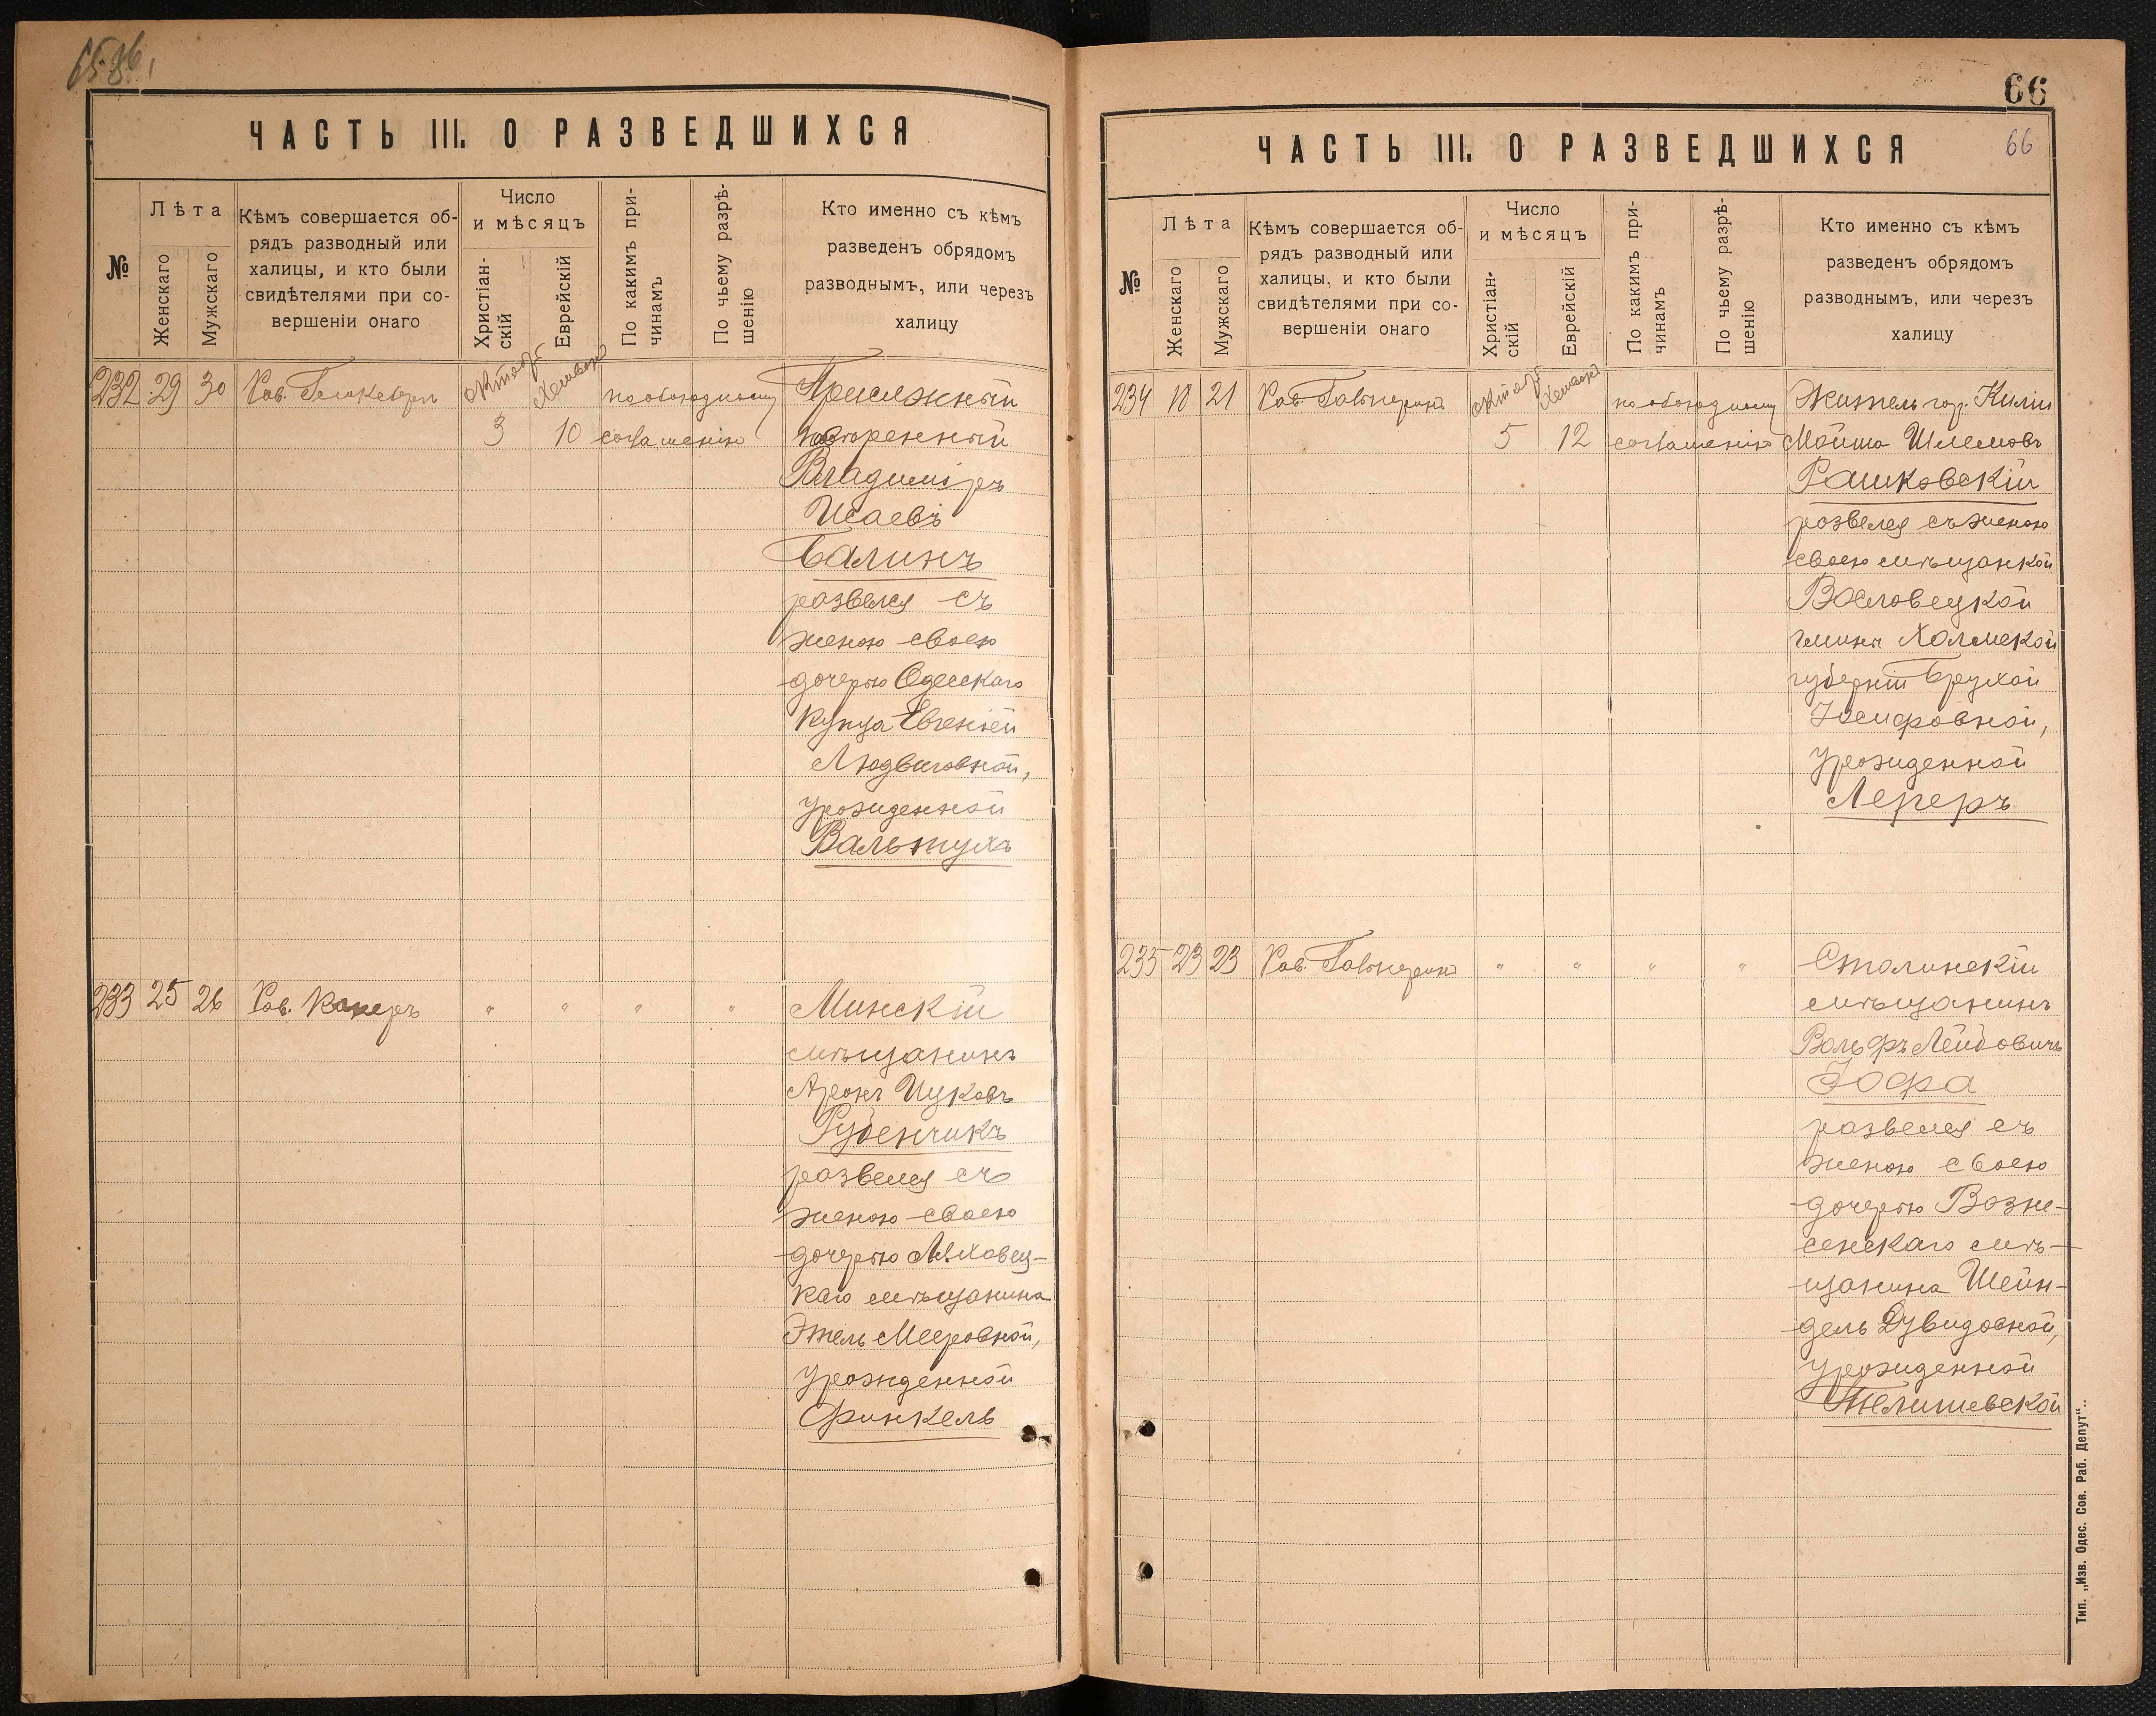 ЧАСТЬ III. О РАЗВЕДШИХСЯ
№
Лѣта
Женскаго
Мужскаго
Кѣмъ совершается об-
рядъ разводный или
халицы, и кто были
свидѣтелями при со-
вершеніи онаго
Число
и мѣсяцъ
Христіан-
скій
Еврейскій
По какимъ при-
чинамъ
По чьему разрѣ-
шенію
Кто именно съ кѣмъ
разведенъ обрядомъ
разводнымъ, или черезъ
халицу
232 29 30 Рав.
октября
Хешвана
3 10
по обоюдному
согласенію
Присяжный
повѣренный
Владиміръ
Исаевъ
Балинъ
развелся съ
женою своею
дочерью Одесскаго
купца Евгеніей
Людвиговной,
урожденной
Вальтухъ
233 25 26 Рав. Канеръ " " " "
Минскій
мѣщанинъ
Аронъ Ицковъ
Рубенчикъ
развелся съ
женою своею
дочерью Ляховец-
каго мѣщанина
Этель Мееровной,
урожденной
Финкель
66
ЧАСТЬ III. О РАЗВЕДШИХСЯ
66
№
Лѣта
Женскаго
Мужскаго
Кѣмъ совершается об-
рядъ разводный или
халицы, и кто были
свидѣтелями при со-
вершеніи онаго
Число
и мѣсяцъ
Христіан-
скій
Еврейскій
По какимъ при-
чинамъ
По чьему разрѣ-
шенію
Кто именно съ кѣмъ
разведенъ обрядомъ
разводнымъ, или черезъ
халицу
234 18 21 Рав.
октября
Хешвана
5 12
по обоюдному
согласенію
Житель гор. Киліи
Мойша Шлемовъ
Рашковскій
розвелся съ женою
своею мѣщанкой
гмины Холмской
губерніи
Іосифовной,
урожденной
Лереръ
235 23 23 Рав. " " " "
Столинскій
мѣщанинъ
Вольфъ Лейбовичъ
Іофа
развелся съ
женою своею
дочерью Возне-
сенскаго мѣ-
щанина Шейн-
дель Дувидовной,
урожденной
Телишевской
Тип. „Изв. Одес. Сов. Раб. Депут“..